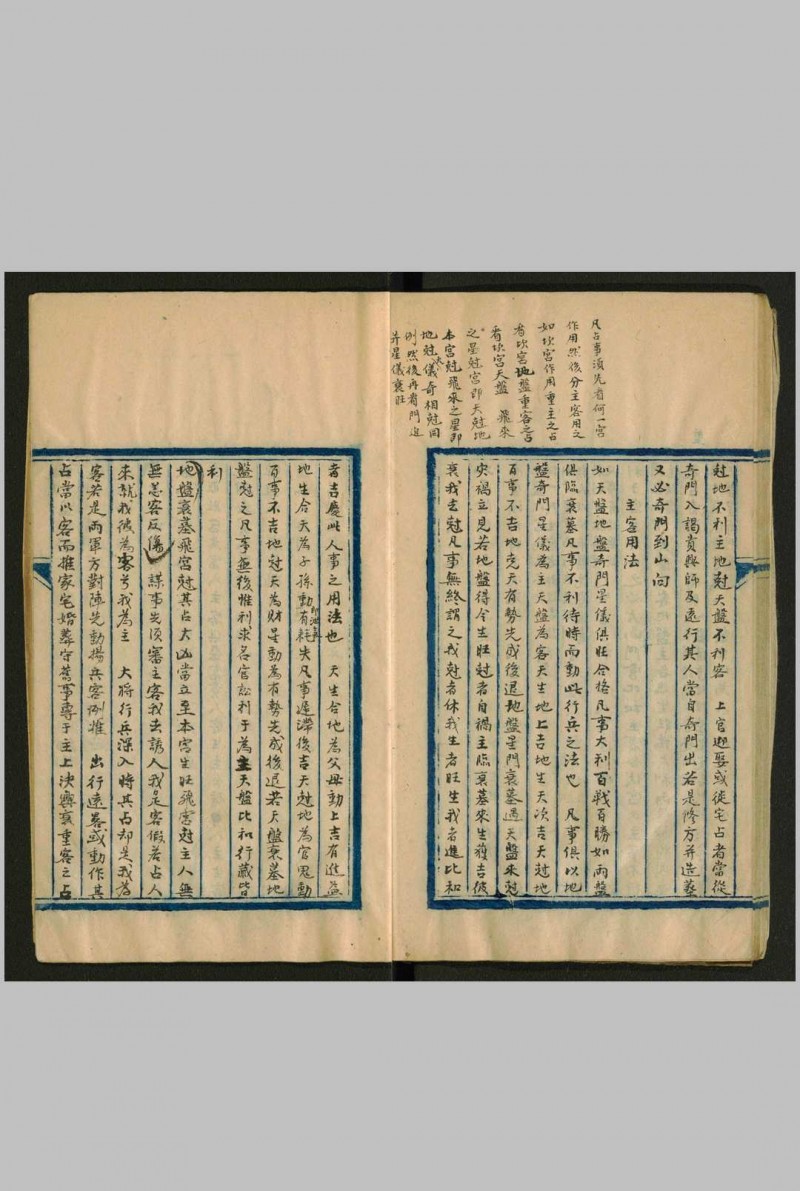 凡占事須先看何一宮
作用然後分主客用之
如坎宮作用重主之占
看坎宮地盤重客之占
看坎宮天盤 飛來
之星尅宮即天尅地
本宮尅飛來之星即
地尅天儀奇相尅同
例然後再看門迫
并星儀衰旺
尅地不利主地尅天盤不利客 上官迎娶或徙宅占者當從
奇門入謁貴興師及遠行其人當自奇門出若是修方并造塟
又必奇門到山向
主客用法
如天盤地盤奇門星儀俱旺合格凡事大利百戰百勝如兩盤
俱臨衰墓凡事不利待時而動此行兵之法也 凡事俱以地
盤奇門星儀為主天盤為客天生地上吉地生天次吉天尅地
百事不吉地尅天有勢先成後退地盤星門衰墓遇天盤來尅
災禍立見若地盤得令生旺尅者自禍主臨衰墓來生獲吉彼
衰我去尅凡事無終謂之我尅者休我生者旺生我者進比和
者吉慶此人事之用法也 天生合地為父母動上吉有進益
地生合天為子孫動有耗失凡事遲滯後吉天尅地為官鬼動
百事不吉地尅天為財星動為有勢先成後退若天盤衰墓地
盤尅之凡事無後惟利求名官訟利于為主天盤比和行藏皆
利
地盤衰墓飛宮尅其占大凶當立至本宮生旺飛宮尅主人無
無恙客反傷 謀事先須審主客我去謁人我是客假若占人
來就我彼為客兮我為主 大將行兵深入時其占却是我為
客若是兩軍方對陣先動揚兵客例推 出行遠畧或動作其
占當以客而推家宅婚塟守舊事專于主上決興衰重客之占